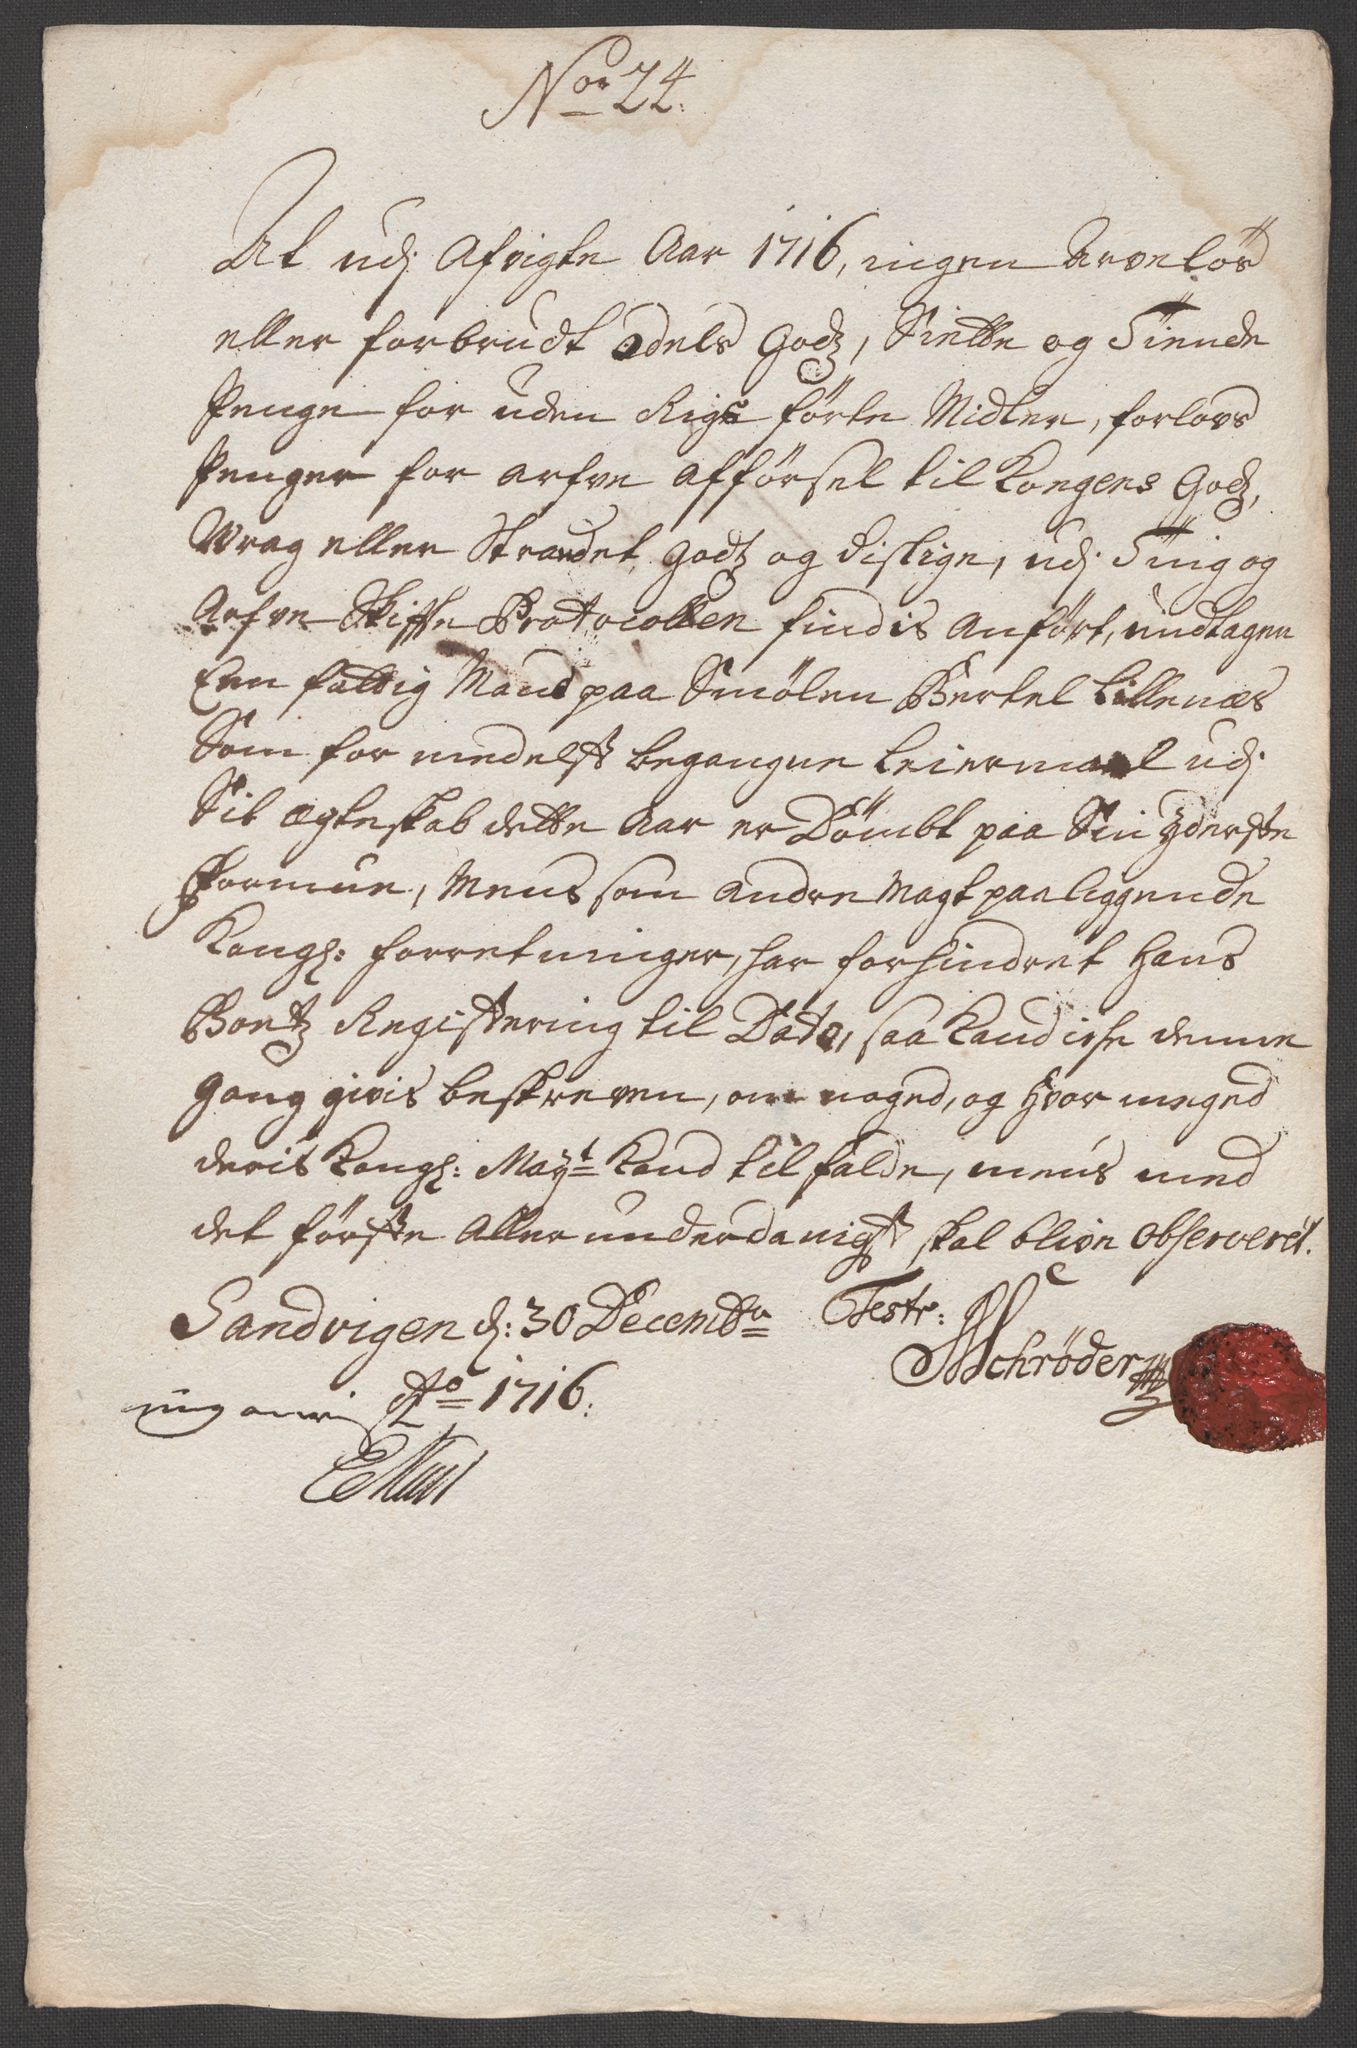 No 24.
At udj Afvigte Aar 1716, ingen Arveløs
eller forbrudt Odels Godz, Siette og Tiende
Penge for uden Rigs førte Midler, forlovs
Penger for arfve Afførsel til Kongens Godz,
Wrag eller Strandet Godz og dislige, udj Ting og
Arfve Skiffte Protocollen findis Anført, undtagen
Een fattig Mand paa Smølen Bertel Lillenæs
Som formedelst begangne Leiermaal udj
Sit Ægteskab dette Aar er Dömbt paa Sin Yderste
Formue, Mens som Andre Magtpaaliggende
Kongl: forretninger, har forhindret Hans
Boetz Registering til Dato, saa Kand icke denne
Gang givis beskreven, om noged, og Hvor meged
deris Kongl: Mayt Kand tilfalde, mens med
det første Allerunderdanigst skal blive observeret.
Sandvigen d: 30 Decembr Testr:
Ao 1716. Schrøder